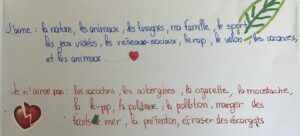 J'aime : la nature, les animaux, les lasagnes, ma famille, le sport
les jeux vidéos, les réseaux-sociaux, le rap, le vélo, les vacances,
et les animaux
Je n'aime pas : les cacahètes, les aubergines, la cigarette, la moustache,
la k-pop, la politique, la pollution, manger des
fruits de mer, la prétention, écraser des escargots